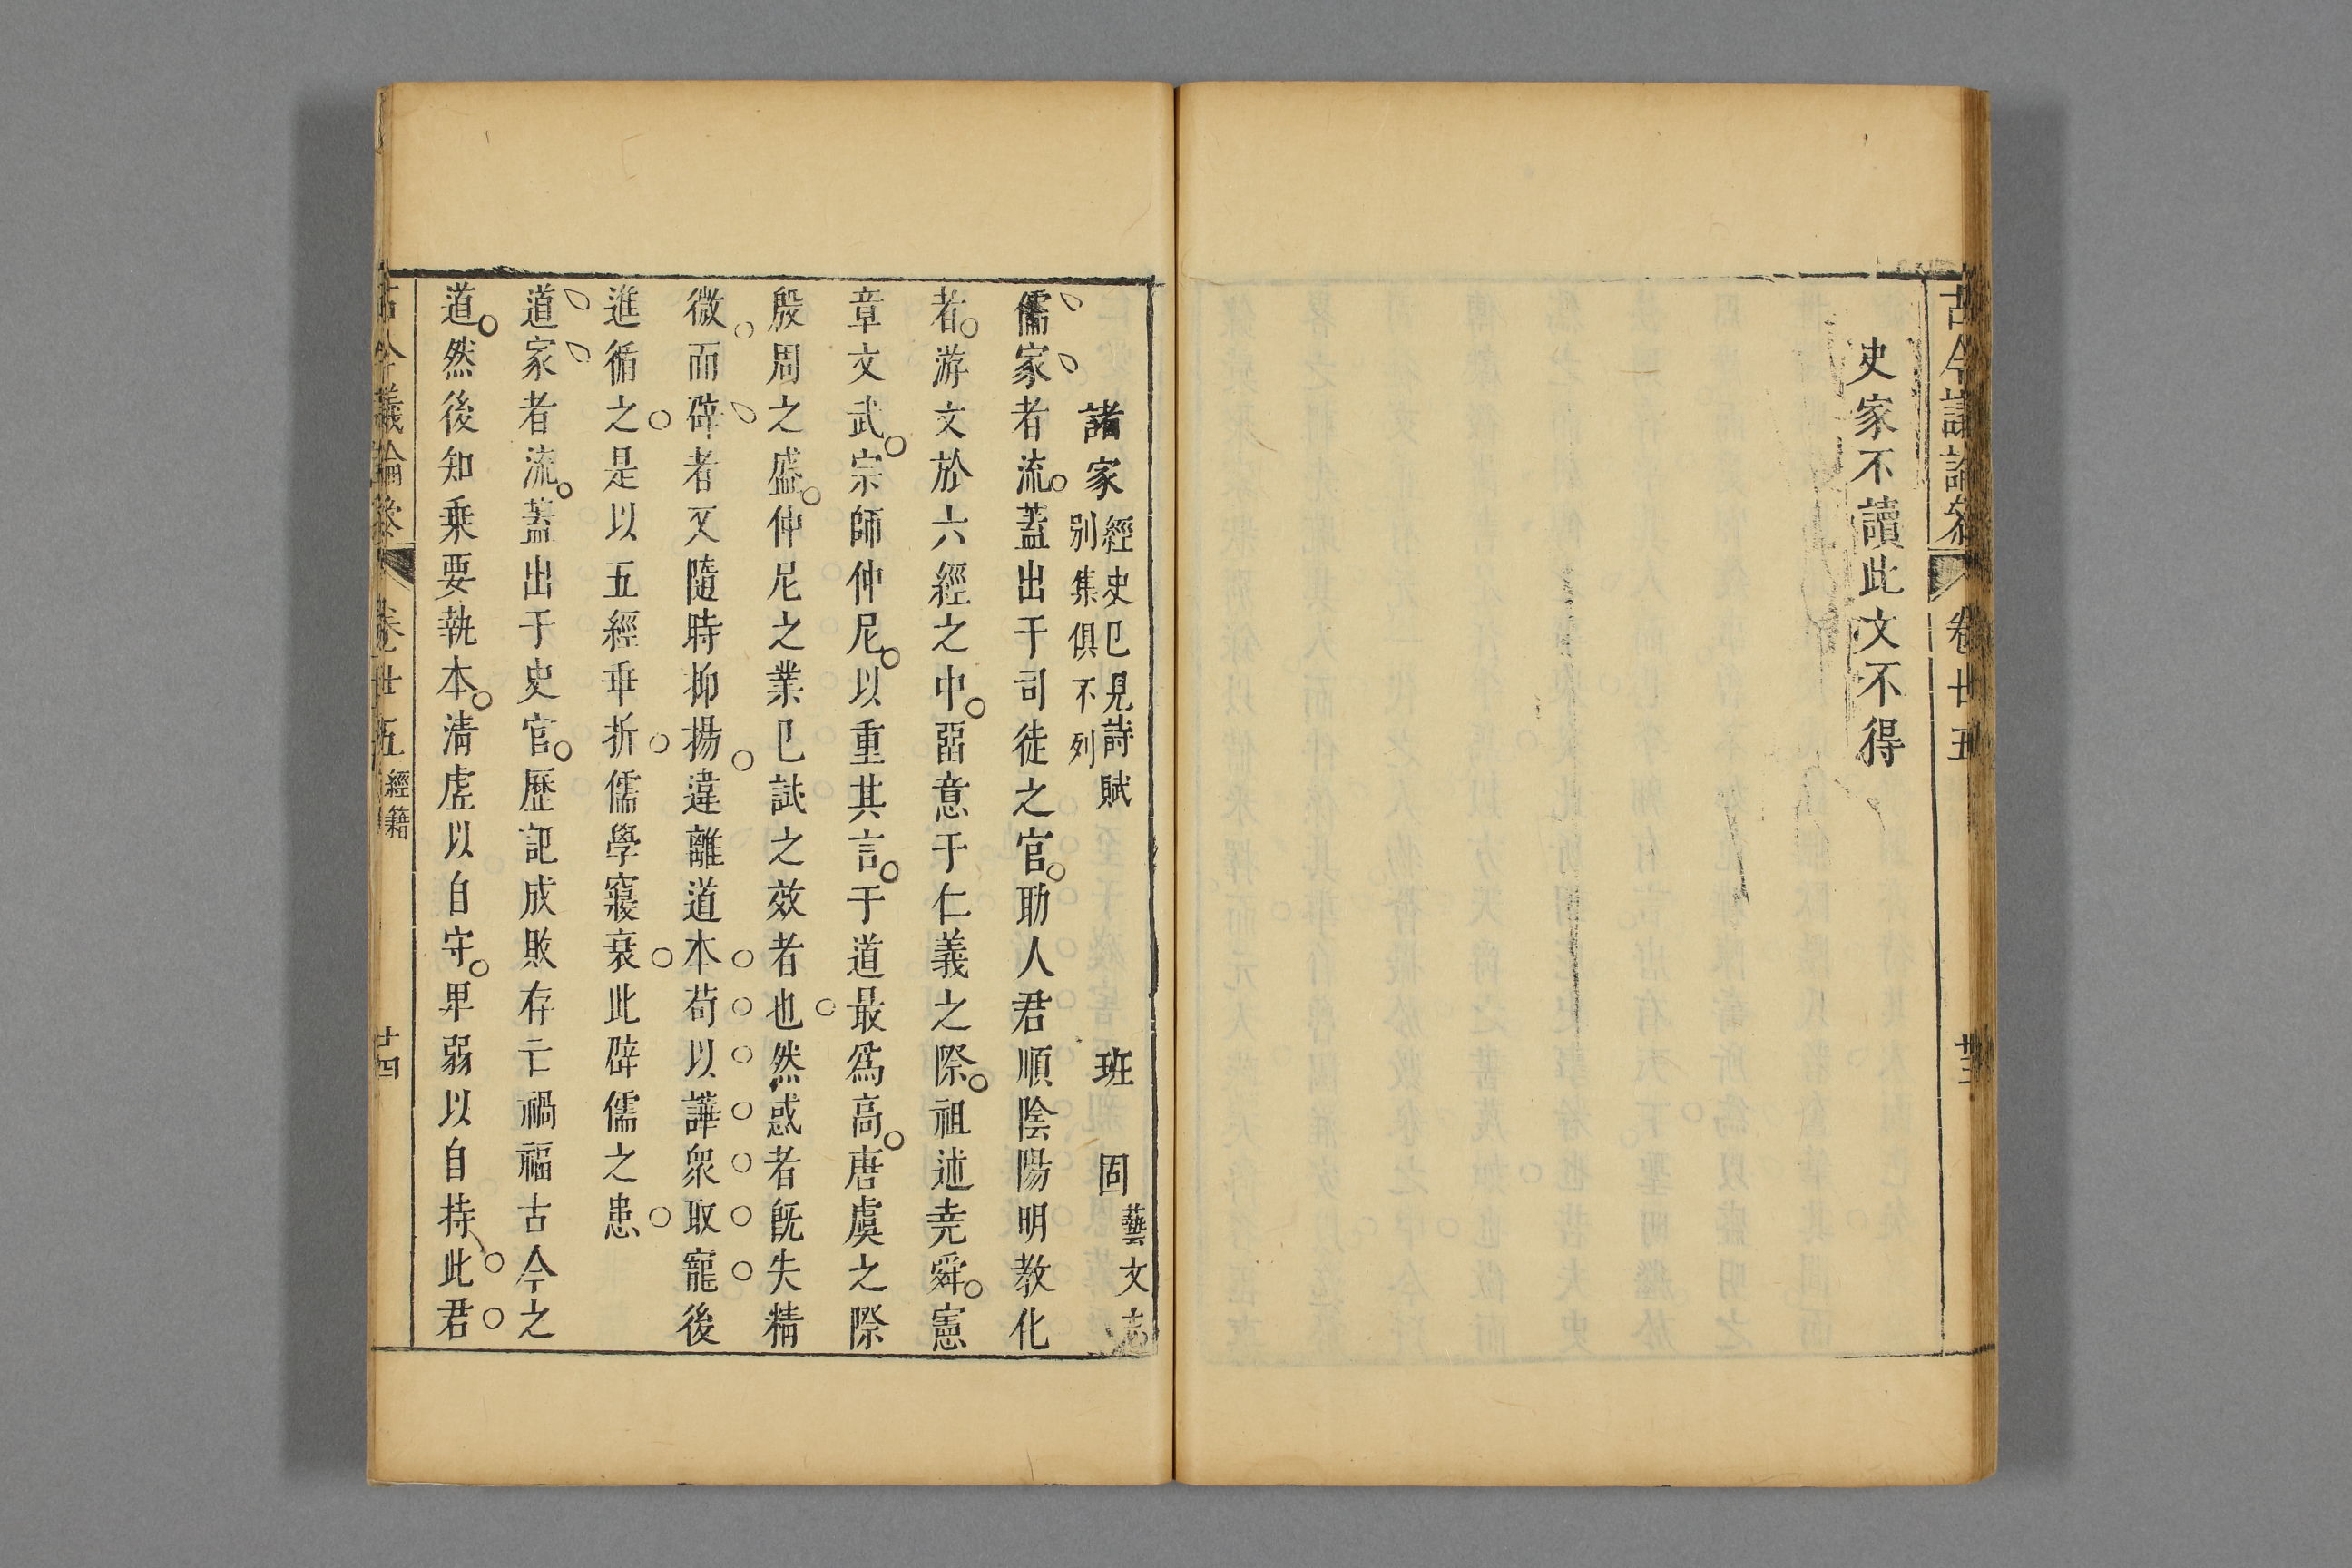 古今議論參 卷廿五 廿三
史家不讀此文不得
諸家 經史已見詩賦 別集俱不列 班固 藝文志
儒家者流蓋出于司徒之官助人君順陰陽明教化
者游文於六經之中畱意于仁義之際祖述堯舜憲
章文武宗師仲尼以重其言于道最爲高唐虞之際
殷周之盛仲尼之業已試之效者也然惑者旣失精
微而辟者又隨時抑揚違離道本苟以譁衆取寵後
進循之是以五經乖折儒學寖衰此辟儒之患
道家者流蓋出于史官歷記成敗存亡禍福古今之
道然後知乗要執本清虛以自守卑弱以自持此君
古今議論參 卷廿五 經籍 廿四